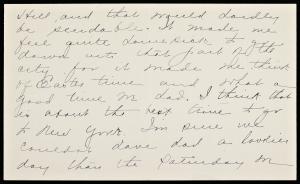 Hill and that would hardly
be sendable. It made me
feel quite homesick to
down into that part of the
city for it made me think
of Easter time and what a
good time we had. I think that
is about the best time to go
to New York. I'm sure we
couldn't have had a lovelier
day than the Saturday we